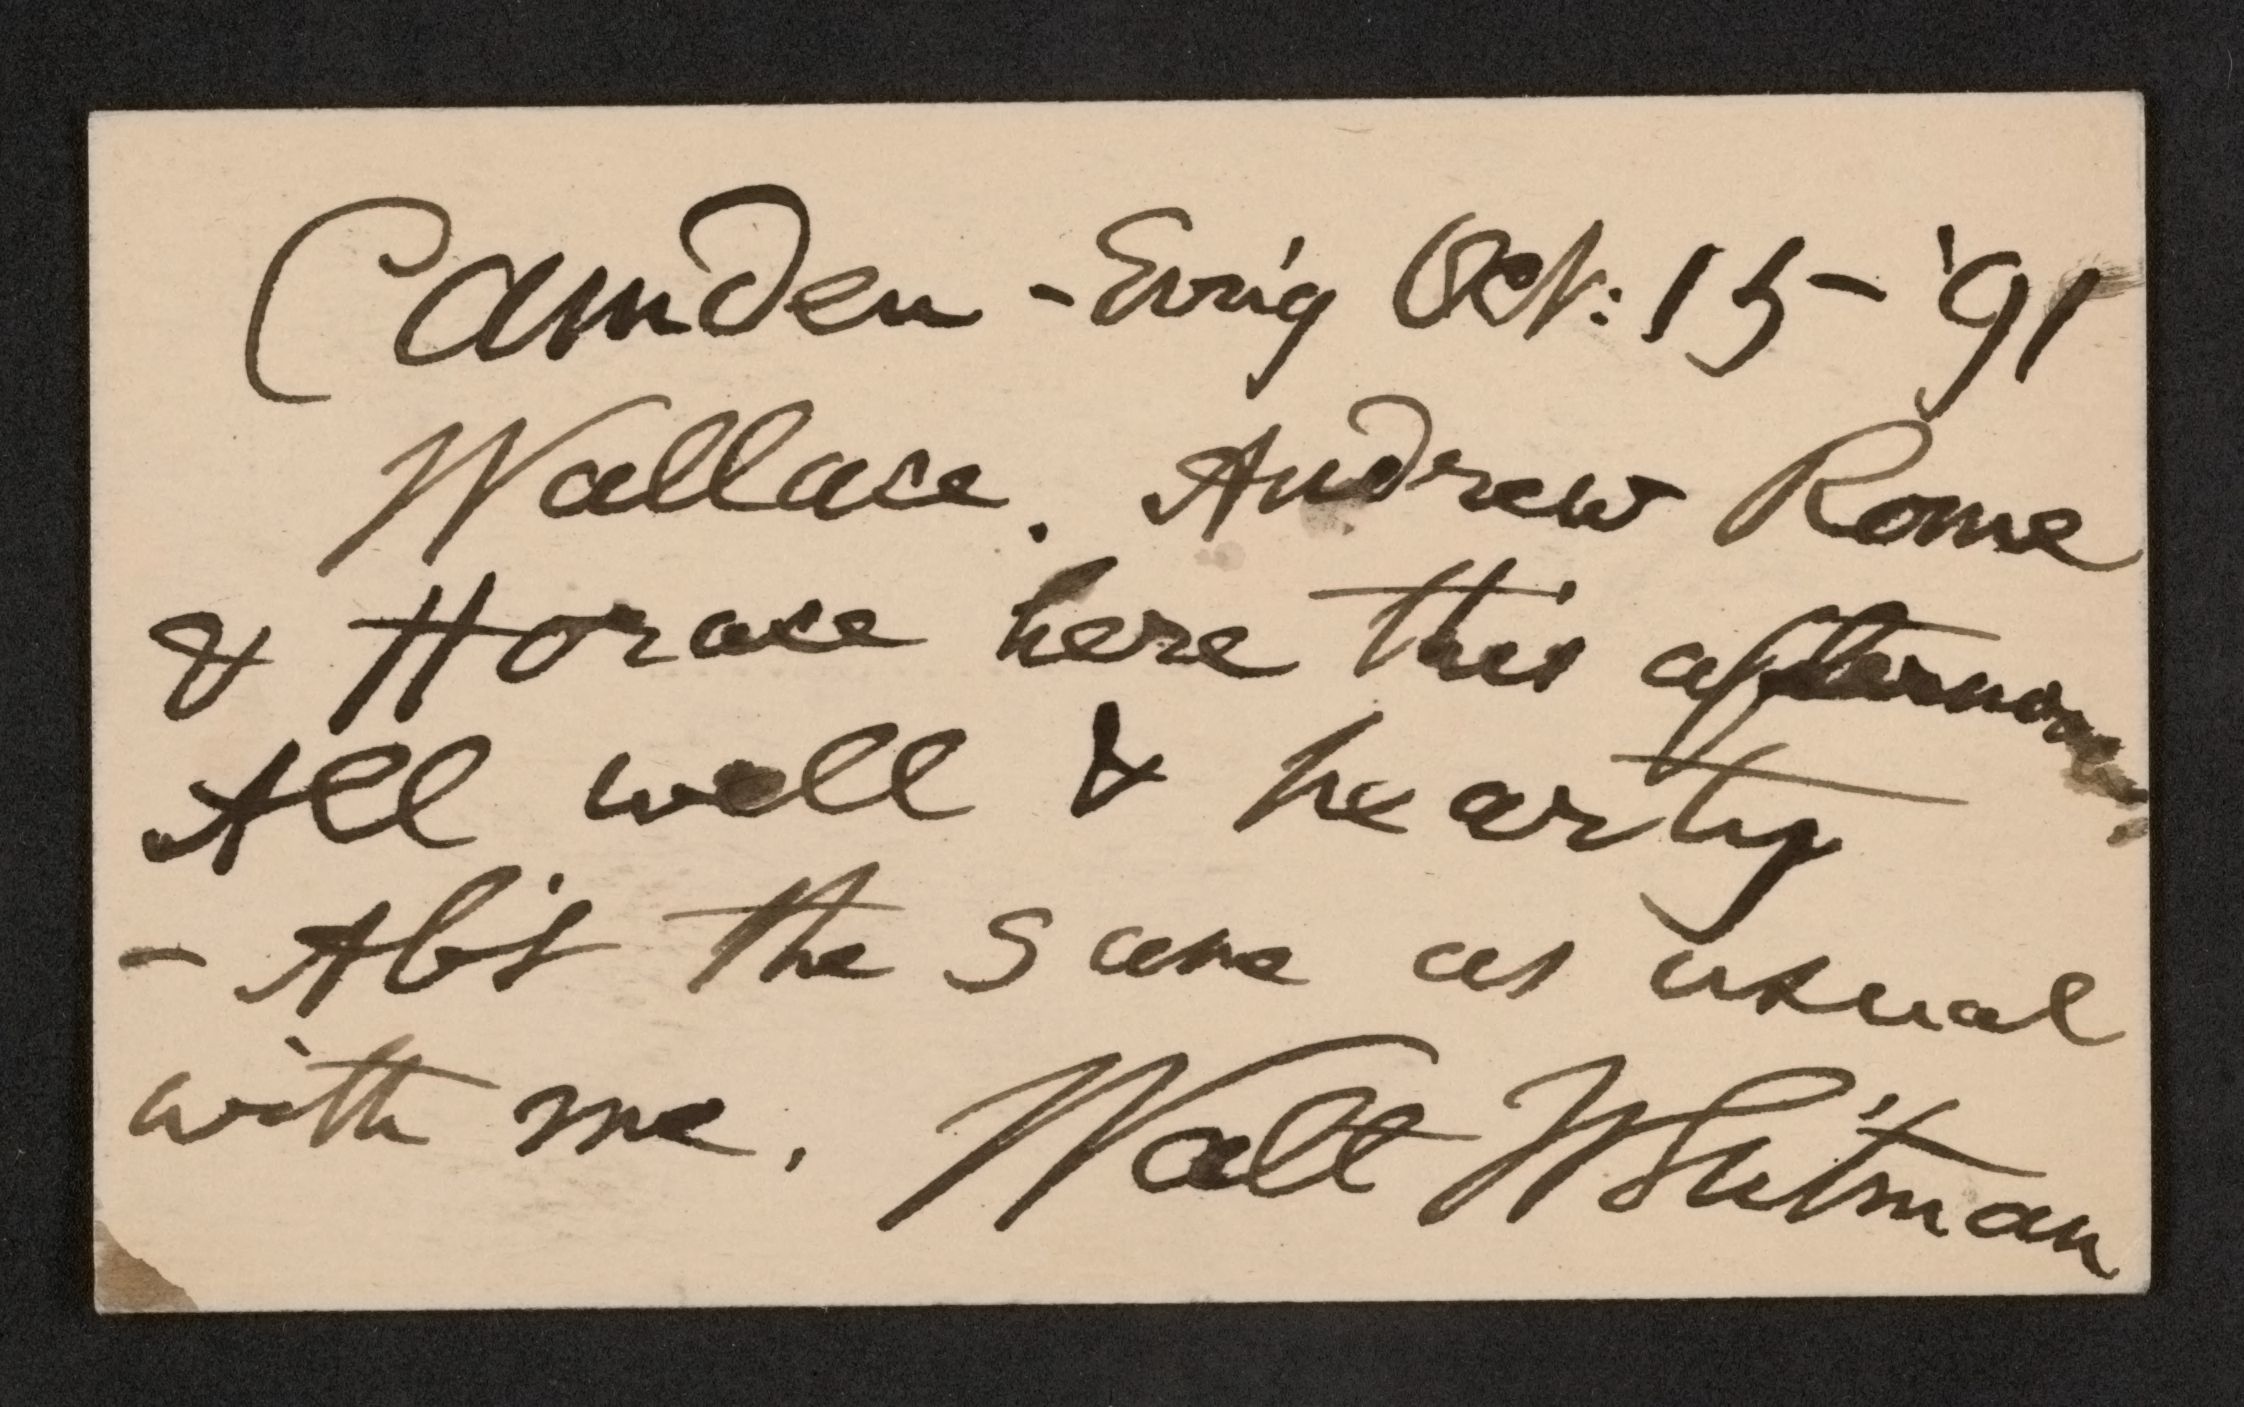 Camden - Evn'g Oct: 15 - '91
Wallace. Andrew Rome
& Horace here this afternoon
All well & hearty
- Ab't the same as usual
with me. Walt Whitman